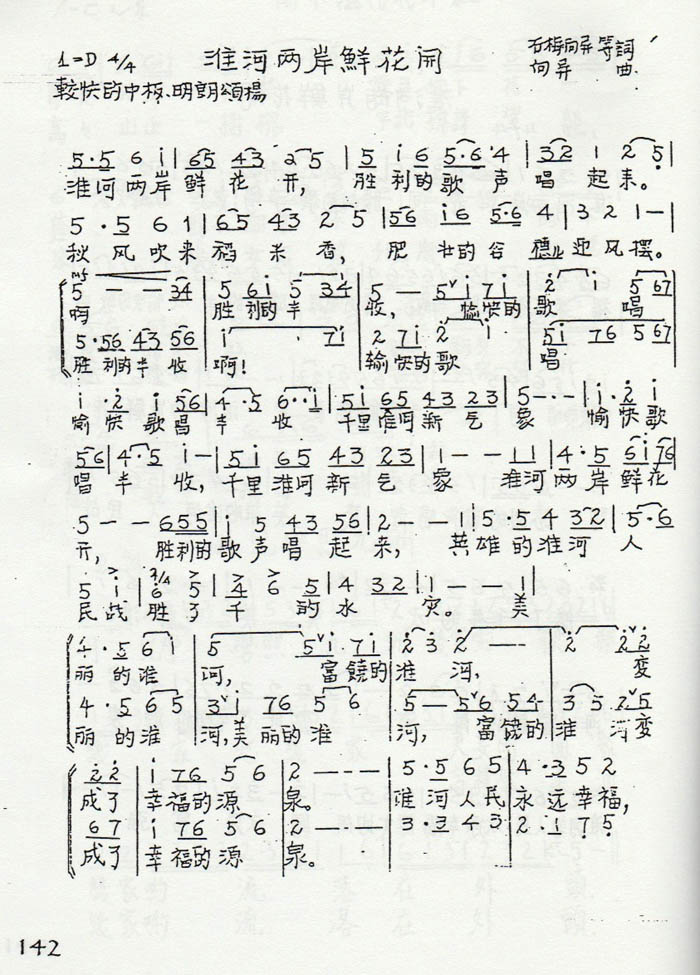 1=D 4/4 淮河两岸鮮花開 石梅向异等詞
較快的中板、明朗頌揚 向异 曲
5·5 6 i | 65 43 2 5 | 5 i 6 5·6 4 | 32 1 2 5
淮河两岸鲜花开，胜利的歌声唱起来。
5·5 6 1 | 65 43 2 5 | 56 i6 5·6 4 | 3 2 1 —
秋风吹来稻米香，肥壮的谷穗迎风摆。
mf
5 — — 34 | 5 6i 5 34 | 5 5 i 7i | 2 i 5 67
啊 胜利的丰收，愉快的歌唱
5·56 43 56 | i 7i | 2 7i 2 i | 5i 76 5 67
胜利的丰收啊！ 愉快的歌唱
i·2 i 56 | 4·5 6··i | 5i 65 43 23 | 5 - - - | i·2 i
愉快歌唱丰收千里淮河新气象 愉快歌
56 | 4·5 i — | 5i 65 43 23 | 1 — — 11 | 4·5 6i 76
唱丰收，千里淮河新气象 淮河两岸鲜花
5 — — 655 | i 5 43 56 | 2 — — 1 | 5·5 4 32 | 5·6
开，胜利的歌声唱起来，英雄的淮河人
5 i | 3/4 6 5 | 4 6 5 | 4 32 | 1 — — 1
民战胜了千的水灾。美
4·5 6 i | 5 5 i 7i | 2 3 2 — — | 2 2 2
丽的淮河，富饶的淮河，变
4·5 6 5 | 3 i 76 5 6 | 5 — 5 6 5 4 | 3 5 2 5
丽的淮河，美丽的淮河，富饶的淮河变
2 2 | i 76 5 6 | 2 — — — | 5·5 6 5 | 4·3 5 2
成了幸福的源泉。淮河人民永远幸福，
67 | i 76 5 6 | 2 — — | 3·3 4 3 | 2·1 7 5
成了幸福的源泉。
142